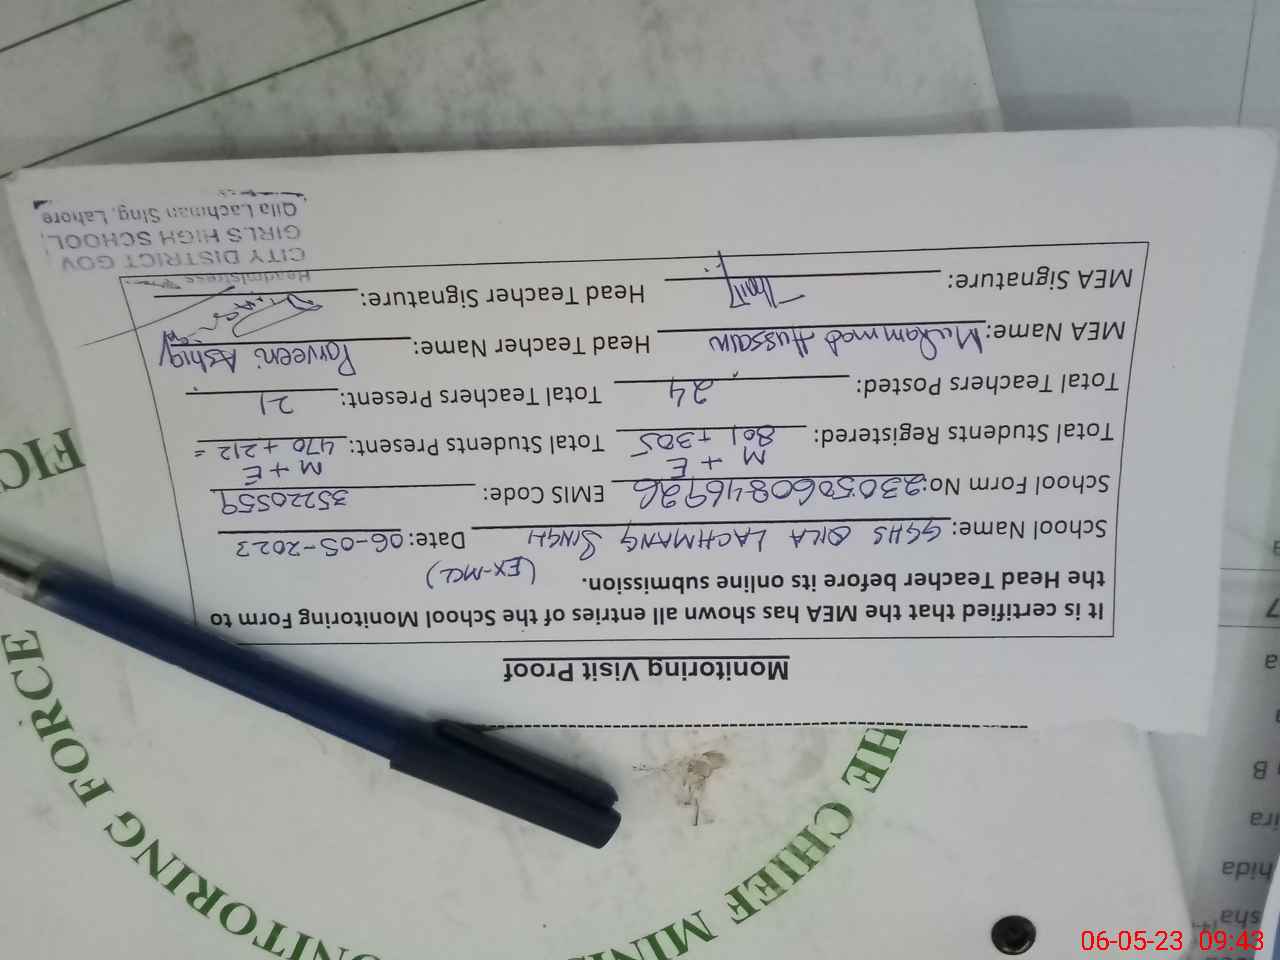 Monitoring Visit Proof
It is certified that the MEA has shown all entries of the School Monitoring Form to
the Head Teacher before its online submission.
(EX-MCL)
School Name: GGHS QILA LACHMANG SINGH Date: 06-05-2023
School Form No: 2305060846926 EMIS Code: 35220559
M + E M + E
Total Students Registered: 801 + 305 Total Students Present: 470 + 212 =
Total Teachers Posted: 24 Total Teachers Present: 21
MEA Name: Muhammad Hussain Head Teacher Name: Parveen Ashiq
MEA Signature: Head Teacher Signature:
Headmistress
CITY DISTRICT GOV
GIRLS HIGH SCHOOL,
Qila Lachman Sing, Lahore
HE CHIEF MINIS
ONITORING FORCE
FIC
06-05-23 09:43